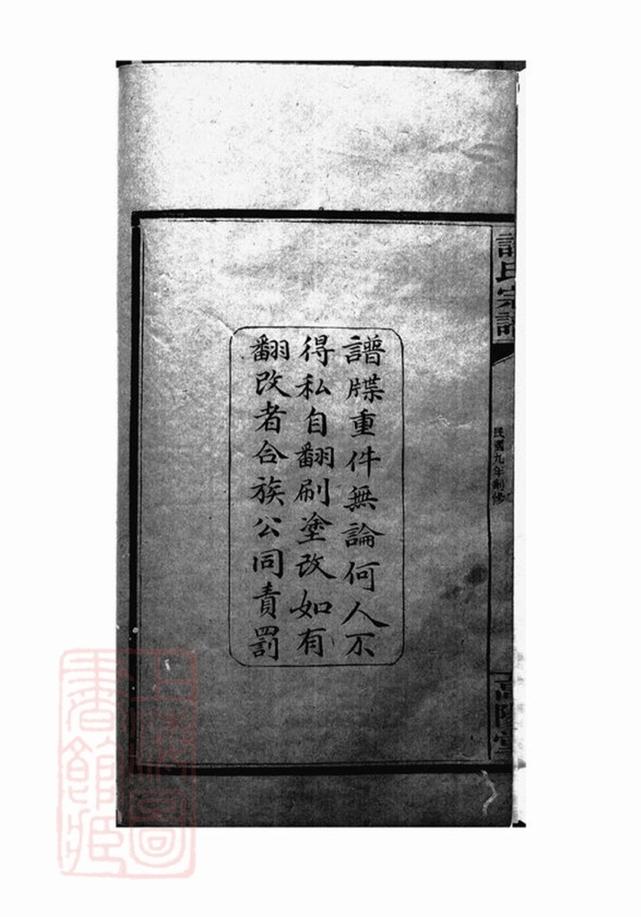 譜牒重件無論何人不
得私自翻刷塗改如有
翻改者合族公同責罰
氏宗譜
民國九年創修
高陽堂